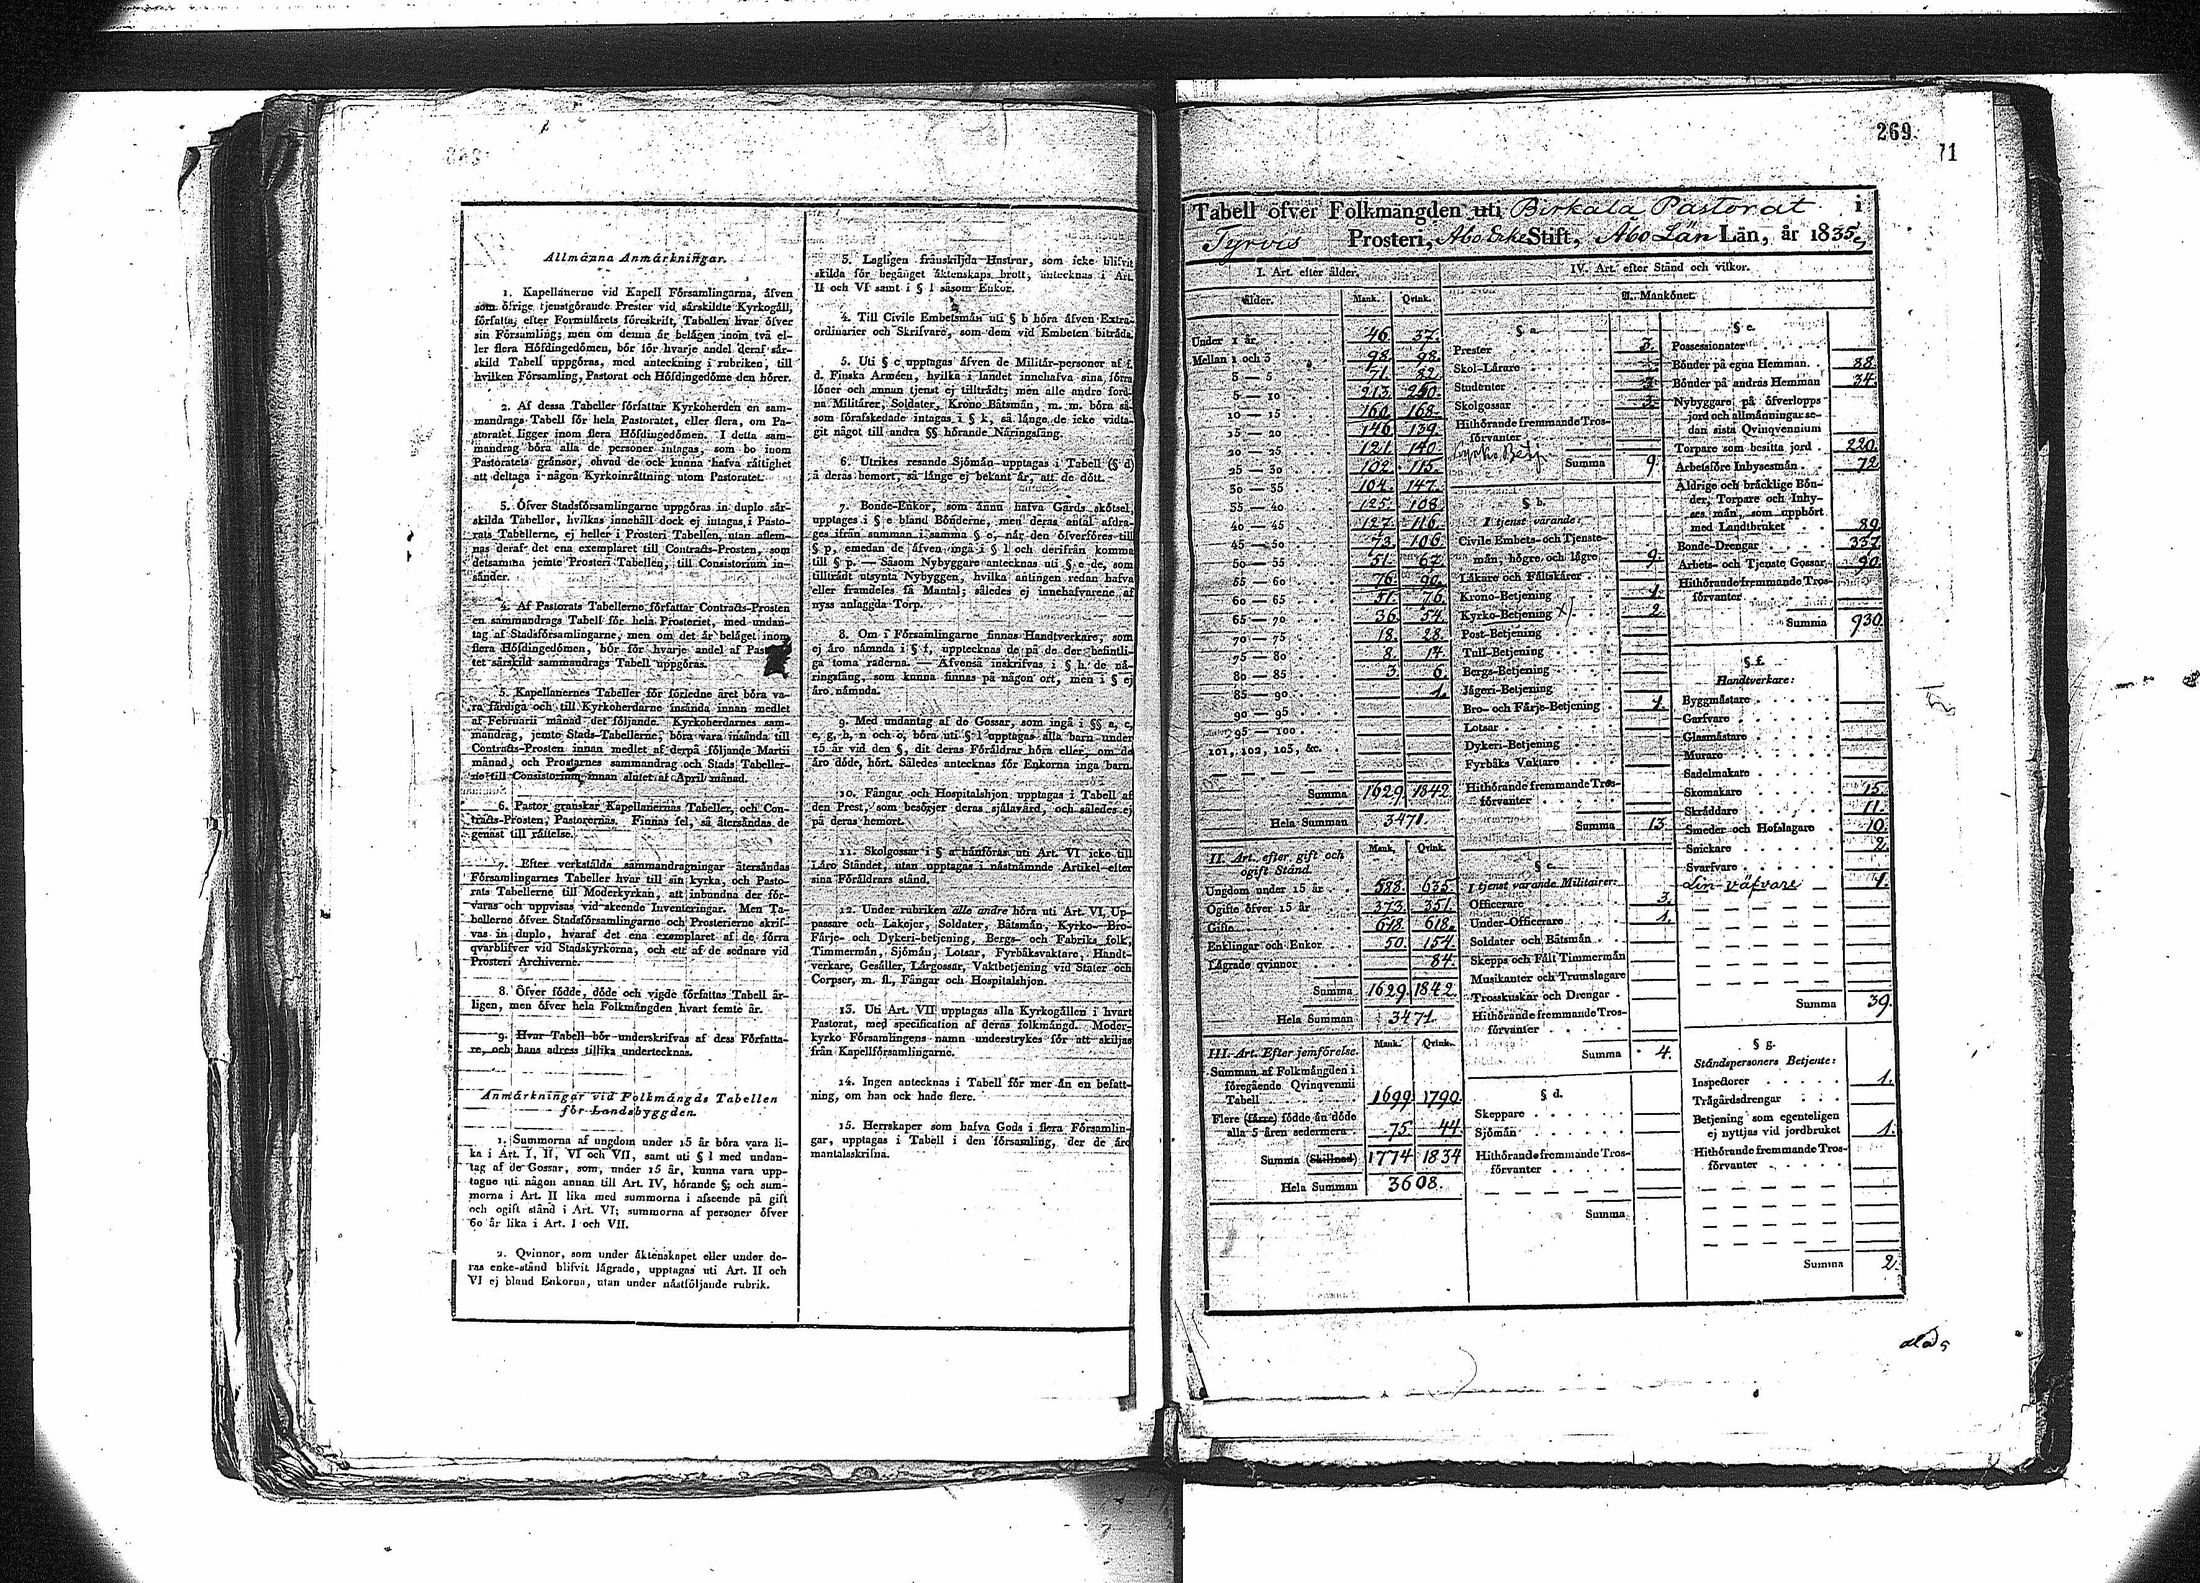 269
71
Allmänna Anmärkningar.
1. Kapellanerne vid Kapell Församlingarna, äfven
som öfrige tjenstgörande Prester vid särskildte Kyrkogäll,
författa, efter Formulärets föreskrift, Tabellen hvar öfver
sin Församling; men om denna är belägen inom två el-
ler flera Höfdingedömen, bör för hvarje andel deraf sär-
skild Tabell uppgöras, med anteckning i rubriken, till
hvilken Församling, Pastorat och Höfdingedöme den hörer.
2. Af dessa Tabeller författar Kyrkoherden en sam-
mandrags Tabell för hela Pastoratet, eller flera, om Pa-
storatet ligger inom flera Höfdingedömen. I detta sam-
mandrag böra alla de personer intagas, som bo inom
Pastoratets gränsor, ehvad de ock kunna hafva rättighet
att deltaga i någon Kyrkoinrättning utom Pastoratet.
3. Öfver Stadsförsamlingarne uppgöras in duplo sär-
skilda Tabeller, hvilkas innehåll dock ej intagas i Pasto-
rats Tabellerne, ej heller i Prosteri Tabellen, utan aflem-
nas deraf det ena exemplaret till Contracts-Prosten, som
detsamma jemte Prosteri Tabellen, till Consistorium in-
sänder.
4. Af Pastorats Tabellerne författar Contracts-Prosten
en sammandrags Tabell för hela Prosteriet, med undan-
tag af Stadsförsamlingarne, men om det är beläget inom
flera Höfdingedömen, bör för hvarje andel af Past
tet särskild sammandrags Tabell uppgöras.
5. Kapellanernes Tabeller för förledne året böra va-
ra färdiga och till Kyrkoherdarne insända innan medlet
af Februarii månad det följande. Kyrkoherdarnes sam-
mandrag, jemte Stads-Tabellerne, böra vara insända till
Contracts-Prosten innan medlet af derpå följande Martii
månad, och Prostarnes sammandrag och Stads Tabeller-
ne till Consistorium innan slutet af April månad.
6. Pastor granskar Kapellanernas Tabeller, och Con-
tracts-Prosten, Pastorernas. Finnas fel, så återsändas de
genast till rättelse.
7. Efter verkställda sammandragningar återsändas
Församlingarnes Tabeller hvar till sin kyrka, och Pasto-
rats Tabellerne till Moderkyrkan, att inbundna der för-
varas och uppvisas vid skeende Inventeringar. Men Ta-
bellerne öfver Stadsförsamlingarne och Prosterierne skrif-
vas in duplo, hvaraf det ena exemplaret af de förra
qvarblifver vid Stadskyrkorna, och ett af de sednare vid
Prosteri Archiverne.
8. Öfver födde, döde och vigde författas Tabell år-
ligen, men öfver hela Folkmängden hvart femte år.
9. Hvar Tabell bör underskrifvas af dess Författa-
re, och hans adress tillika undertecknas.
Anmärkningar vid Folkmängds Tabellen
för Landsbyggden.
1. Summorna af ungdom under 15 år böra vara li-
ka i Art. I, II, VI och VII, samt uti § l med undan-
tag af de Gossar, som, under 15 år, kunna vara upp-
tagne uti någon annan till Art. IV, hörande §; och sum-
morna i Art. II lika med summorna i afseende på gift
och ogift stånd i Art. VI; summorna af personer öfver
60 år lika i Art. I och VII.
2. Qvinnor, som under äktenskapet eller under de-
ras enke-stånd blifvit lägrade, upptagas uti Art. II och
VI ej bland Enkorna, utan under nästföljande rubrik.
3. Lagligen frånskiljda Hustrur, som icke blifvit
skilda för begånget äktenskaps brott, antecknas i Art.
II och VI samt i § l såsom Enkor.
4. Till Civile Embetsmän uti § b höra äfven Extra-
ordinarier och Skrifvare, som dem vid Embeten biträda.
5. Uti § c upptagas äfven de Militär-personer af f.
d. Finska Arméen, hvilka i landet innehafva sina förra
löner och annan tjenst ej tillträdt; men alle andre ford-
na Militärer, Soldater, Krono Båtsmän, m. m. böra så-
som förafskedade intagas i § k, så länge de icke vidta-
git något till andra §§ hörande Näringsfång.
6. Utrikes resande Sjömän upptagas i Tabell (§ d)
å deras hemort, så länge ej bekant är, att de dött.
7. Bonde-Enkor, som ännu hafva Gårds skötsel,
upptages i § e bland Bönderne, men deras antal afdra-
ges ifrån summan i samma § e, när den öfverföres till
§ p, emedan de äfven ingå i § l och derifrån komma
till § p. — Såsom Nybyggare antecknas uti § e de, som
tillträdt utsynta Nybyggen, hvilka antingen redan hafva
eller framdeles få Mantal; således ej innehafvarene af
nyss anlaggda Torp.
8. Om i Församlingarne finnas Handtverkare, som
ej äro nämnda i § f, upptecknas de på de der befintli-
ga toma raderna. — Äfvenså inskrifvas i § h de nä-
ringsfång, som kunna finnas på någon ort, men i § ej
äro nämnda.
9. Med undantag af de Gossar, som ingå i §§ a, c,
e, g, h, n och o, böra uti § l upptagas alla barn under
15 år vid den §, dit deras Föräldrar höra eller, om de
äro döde, hört. Således antecknas för Enkorna inga barn.
10. Fångar och Hospitalshjon upptagas i Tabell af
den Prest, som besörjer deras själavård, och således ej
på deras hemort.
11. Skolgossar i § a hänföras uti Art. VI icke till
Läro Ståndet, utan upptagas i nästnämnde Artikel efter
sina Föräldrars stånd.
12. Under rubriken alle andre höra uti Art. VI, Up-
passare och Lakejer, Soldater, Båtsmän, Kyrko- Bro-
Färje- och Dykeri-betjening, Bergs- och Fabriks folk,
Timmermän, Sjömän, Lotsar, Fyrbåksvaktare, Handt-
verkare, Gesäller, Lärgossar, Vaktbetjening vid Stater och
Corpser, m. fl., Fångar och Hospitalshjon.
13. Uti Art. VII upptagas alla Kyrkogällen i hvart
Pastorat, med specification af deras folkmängd. Moder-
kyrko Församlingens namn understrykes för att skiljas
från Kapellförsamlingarne.
14. Ingen antecknas i Tabell för mer än en befatt-
ning, om han ock hade flere.
15. Herrskaper som hafva Gods i flera Församlin-
gar, upptagas i Tabell i den församling, der de äro
mantalsskrifna.
Tabell öfver Folkmängden uti Birkala Pastorat i
Tyrvis Prosteri, Åbo Erke Stift, Åbo Län Län, år 1835.
I. Art. efter ålder.
Ålder. Mank. Qvink.
Under 1 år 46 37
Mellan 1 och 3 98 98
3 — 5 71 82
5 — 10 213 250
10 — 15 160 168
15 — 20 146 139
20 — 25 121 140
25 — 30 102 115
30 — 35 104 147
35 — 40 125 108
40 — 45 127 116
45 — 50 73 106
50 — 55 51 67
55 — 60 76 90
60 — 65 51 76
65 — 70 36 54
70 — 75 18 28
75 — 80 8 14
80 — 85 3 6
85 — 90 1
90 — 95
95 — 100
101, 102, 103, &c.
Summa 1629 1842
Hela Summan 3471.
II. Art. efter gift och
ogift Stånd. Mank. Qvink.
Ungdom under 15 år 588 635
Ogifte öfver 15 år 373 351
Gifte 618 618
Enklingar och Enkor 50 154
Lägrade qvinnor 84
Summa 1629 1842
Hela Summan 3471.
III. Art. Efter jemförelse. Mank. Qvink.
Summan af Folkmängden i
föregående Qvinqvennii
Tabell 1699 1790
Flere (färre) födde än döde
alla 5 åren sedermera 75 44
Summa (Skillnad) 1774 1834
Hela Summan 3608.
IV. Art. efter Stånd och vilkor.
A. Mankönet.
§ a.
Prester 3
Skol-Lärare
Studenter 3
Skolgossar 3
Hithörande fremmande Tros-
förvanter
Kyrko Betj.
Summa 9
§ b.
I tjenst varande:
Civile Embets- och Tjenste-
män, högre och lägre 9
Läkare och Fältskärer
Krono-Betjening 1
Kyrko-Betjening X) 2
Post-Betjening
Tull-Betjening
Bergs-Betjening
Jägeri-Betjening
Bro- och Färje-Betjening 1
Lotsar
Dykeri-Betjening
Fyrbåks Vaktare
Hithörande fremmande Tros-
förvanter
Summa 13
§ c.
I tjenst varande Militairer:
Officerare 3
Under-Officerare 1
Soldater och Båtsmän
Skepps och Fält Timmermän
Musikanter och Trumslagare
Trosskuskar och Drengar
Hithörande fremmande Tros-
förvanter
Summa 4.
§ d.
Skeppare
Sjömän
Hithörande fremmande Tros-
förvanter
Summa
§ e.
Possessionater
Bönder på egna Hemman 88
Bönder på andras Hemman 34
Nybyggare på öfverlopps
jord och allmänningar se-
dan sista Qvinqvennium
Torpare som besitta jord 220
Arbetsföre Inhysesmän 72
Åldrige och bräcklige Bön-
der, Torpare och Inhy-
ses män, som upphört
med Landtbruket 89
Bonde-Drengar 337
Arbets- och Tjenste Gossar 90
Hithörande fremmande Tros-
förvanter
Summa 930
§ f.
Handtverkare:
Byggmästare
Garfvare
Glasmästare
Murare
Sadelmakare
Skomakare 15
Skräddare 11
Smeder och Hofslagare 10
Snickare 2
Svarfvare
Lin-väfvare 1.
Summa 39.
§ g.
Ståndspersoners Betjente:
Inspectorer 1.
Trägårdsdrengar
Betjening som egenteligen
ej nyttjas vid jordbruket 1.
Hithörande fremmande Tros-
förvanter
Summa 2.